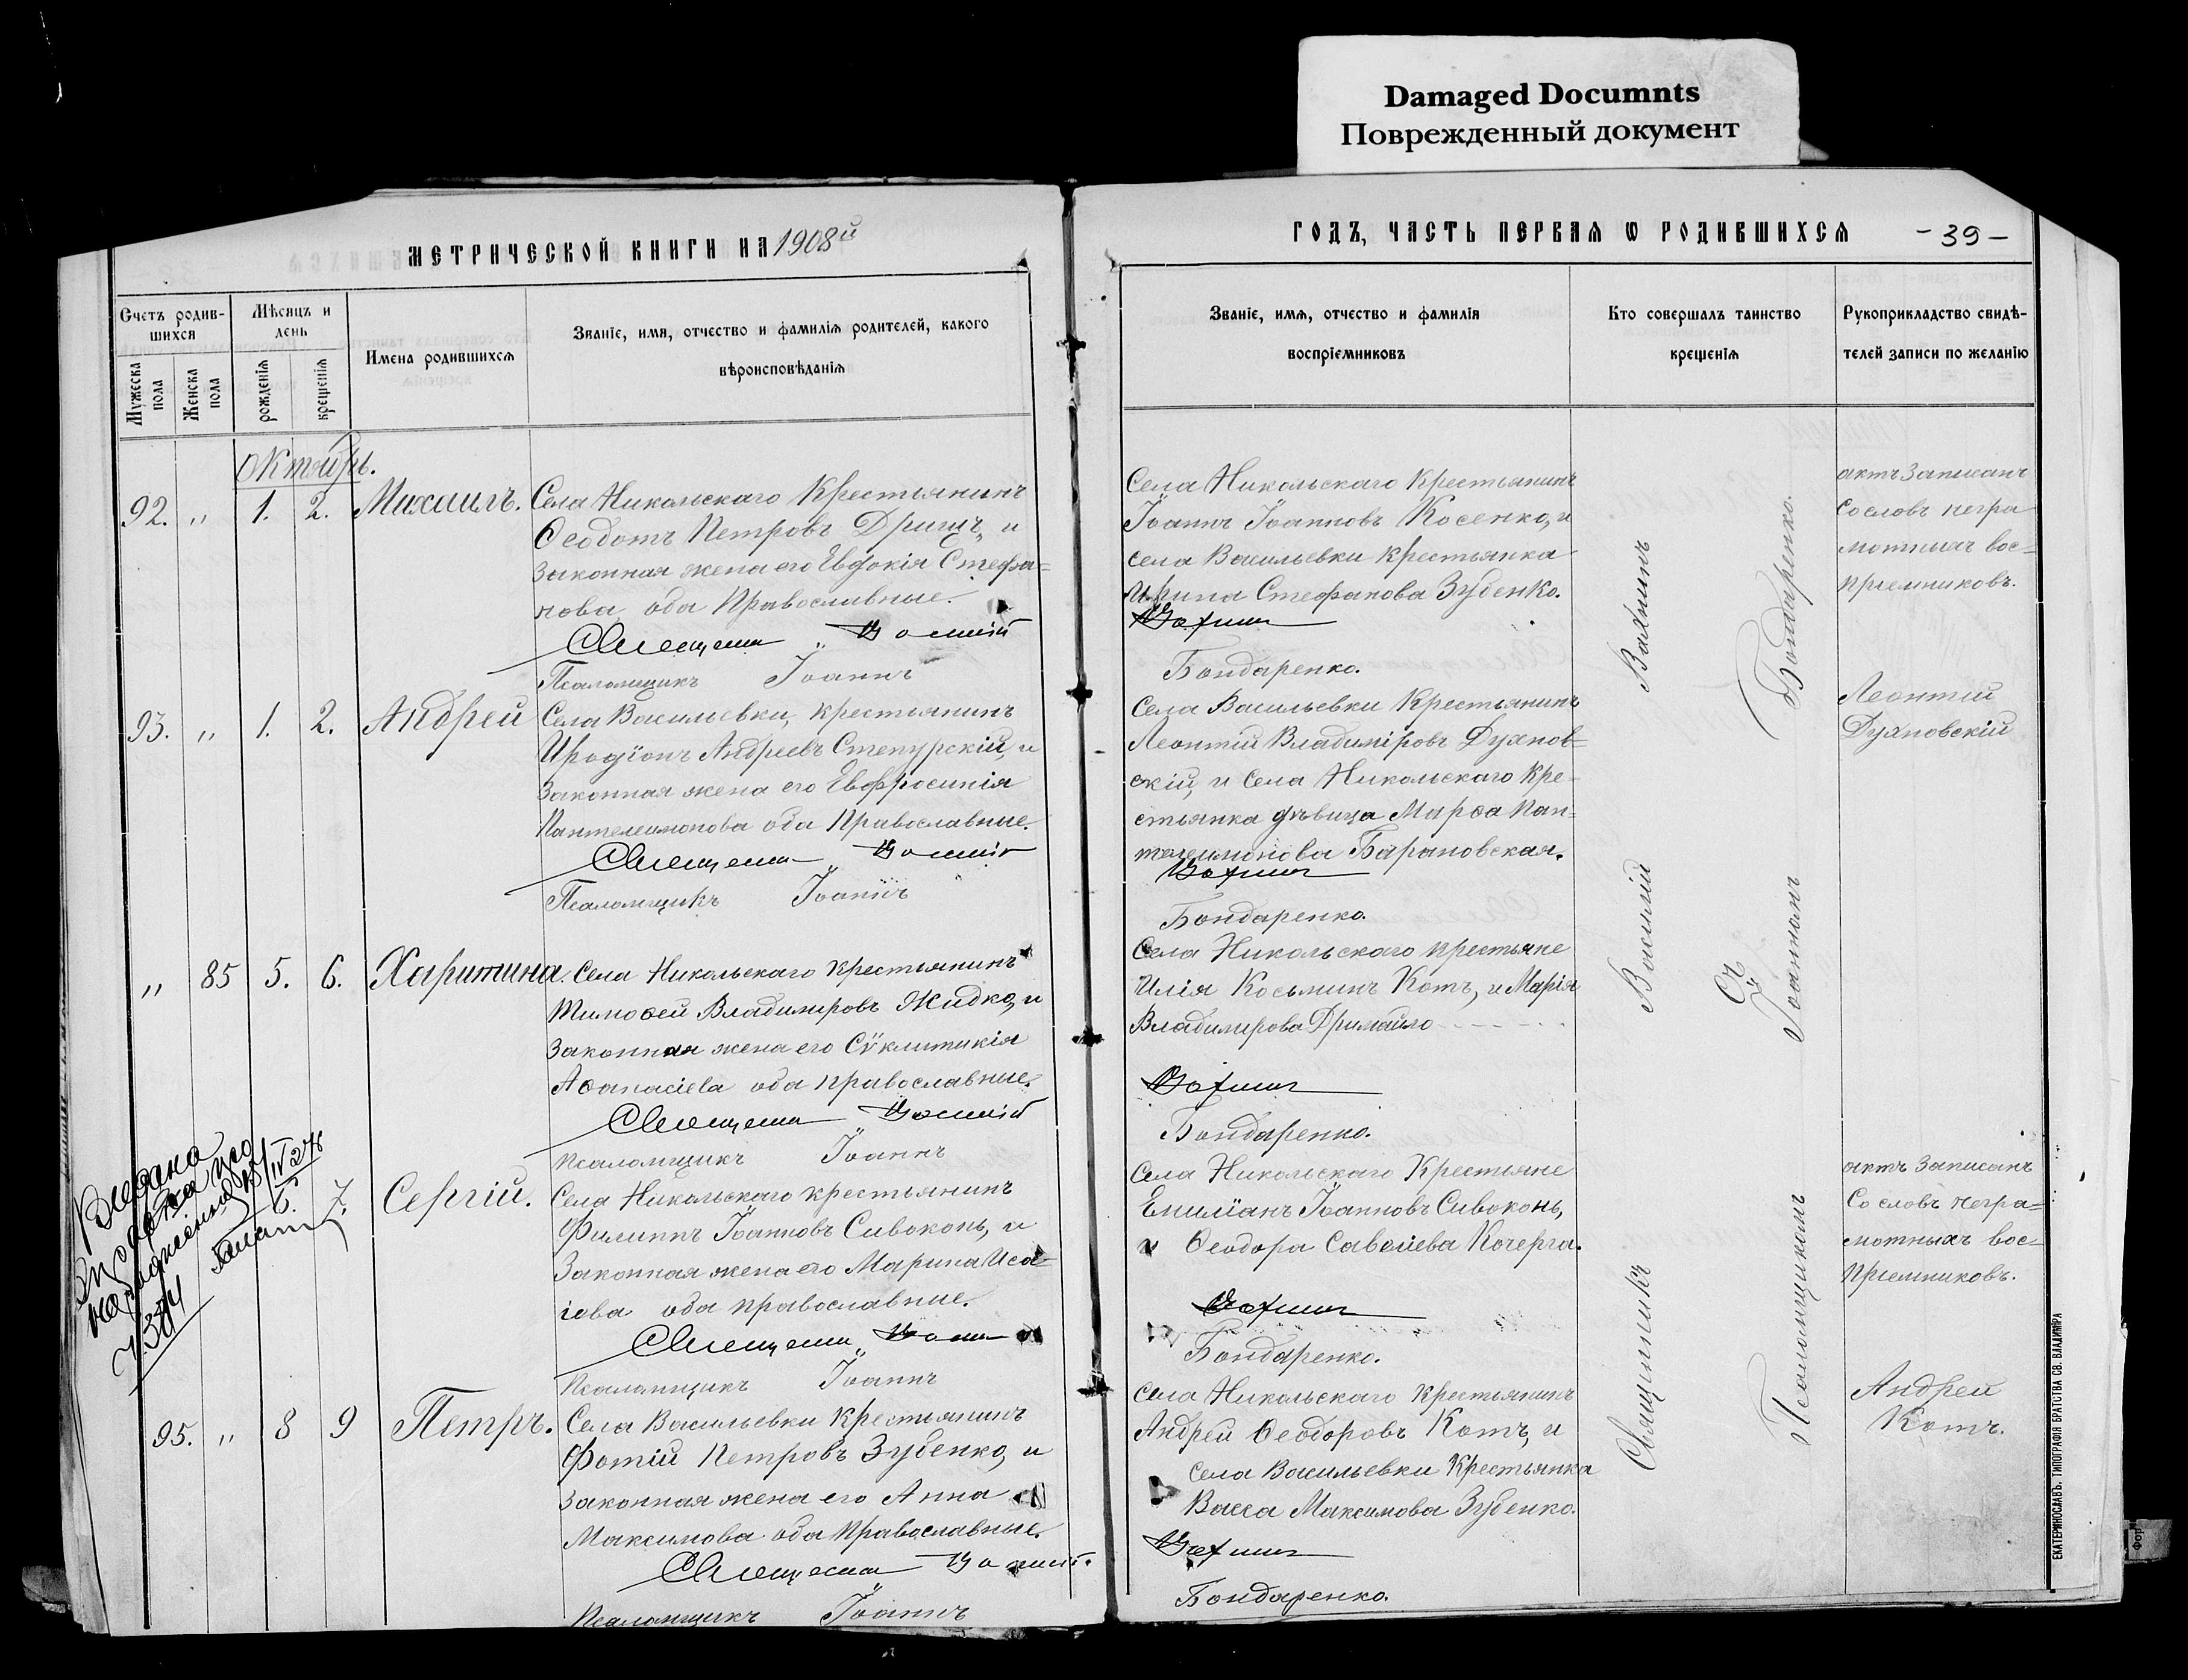 Damaged Documnts
Поврежденный документ
МЕТРИЧЕСКОЙ КНИГИ НА 1908й
Счетъ родив-
шихся
Мужеска
пола
Женска
пола
Мѣсяцъ и
день
рожденія
крещенія
Имена родившихся
Званіе, имя, отчество и фамилія родителей, какого
вѣроисповѣданія
Октябрь.
92. „ 1. 2. Михаилъ.
Села Никольскаго Крестьянинъ
Ѳеодотъ Петровъ и
Законная жена его Евдокія Стефа=
нова оба Православные.
Священникъ Василій
Псаломщикъ Іоаннъ
93. „ 1. 2. Андрей
Села Васильевки, крестьянинъ
Иродіонъ Андреевъ Степурскій, и
Законная жена его Евфросинія
Пантелеимонова оба Православные.
Священникъ Василій
Псаломщикъ Іоаннъ
„ 85 5. 6. Харитина.
Села Никольскаго крестьянинъ
Тимоѳей Владимировъ Жидко, и
Законная жена его Сѵклитикія
Аѳанасіева оба православные.
Священникъ Василій
Псаломщикъ Іоаннъ
Видана
7. Сергій.
Села Никольскаго крестьянинъ
Филиппъ Іоанновъ Сивоконь, и
Законная жена его Марина Иса=
іева оба православные.
Священникъ
Псаломщикъ Іоаннъ
95. „ 8 9 Петръ.
Села Васильевки Крестьянинъ
Фотій Петровъ Зубенко, и
Законная жена его Анна
Максимова оба Православные.
Священникъ Василій
Псаломщикъ Іоаннъ
ГОДЪ, ЧАСТЬ ПЕРВАЯ Ѡ РОДИВШИХСЯ
-39-
Званіе, имя, отчество и фамилія
воспріемниковъ
Кто совершалъ таинство
крещенія
Рукоприкладство свидѣ-
телей записи по желанію
Села Никольскаго Крестьянинъ
Іоаннъ Іоанновъ Косенко, и
села Васильевки крестьянка
Ирина Стефанова Зубенко.
Вахнинъ
Бондаренко.
Села Васильевки Крестьянинъ
Леонтій Владиміровъ Духнов=
скій, и Села Никольскаго Кре=
стьянка дѣвица Марѳа Пан=
телимонова Барановская.
Вахнинъ
Бондаренко.
Села Никольскаго крестьяне
Илія Косьминъ Котъ, и Марія
Владимирова Дримайло
Вахнинъ
Бондаренко.
Села Никольскаго Крестьяне
Емиліанъ Іоанновъ Сивоконь,
и Ѳеодора Савеліева Кочерга.
Вахнинъ
Бондаренко.
Села Никольскаго крестьянинъ
Андрей Ѳеодоровъ Котъ, и
села Васильевки Крестьянка
Васса Максимова Зубенко.
Вахнинъ
Бондаренко.
Священникъ Василій Вахнинъ
Съ
Псаломщикомъ Іоанномъ Бондаренко.
актъ Записанъ
Со словъ негра
мотныхъ вос=
пріемниковъ.
Леонтій
Духновскій
актъ Записанъ
Со словъ негра=
мотныхъ вос=
пріемниковъ.
Андрей
Котъ.
ЕКАТЕРИНОСЛАВЪ. ТИПОГРАФІЯ БРАТСТВА СВ. ВЛАДИМІРА